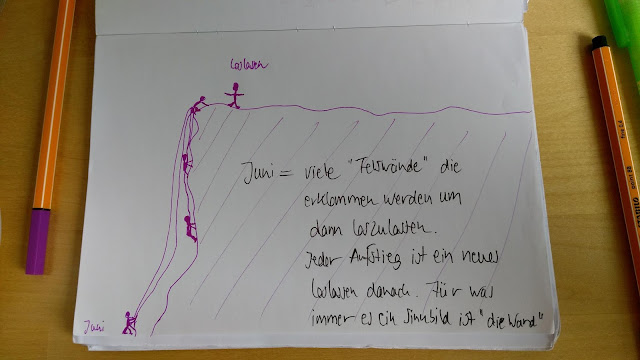 loslassen
Juni = viele "Felswände" die
erklommen werden um
dann loszulassen.
Jeder Aufstieg ist ein neues
loslassen danach. Für was
immer es ein Sinnbild ist "die Wand"
Juni